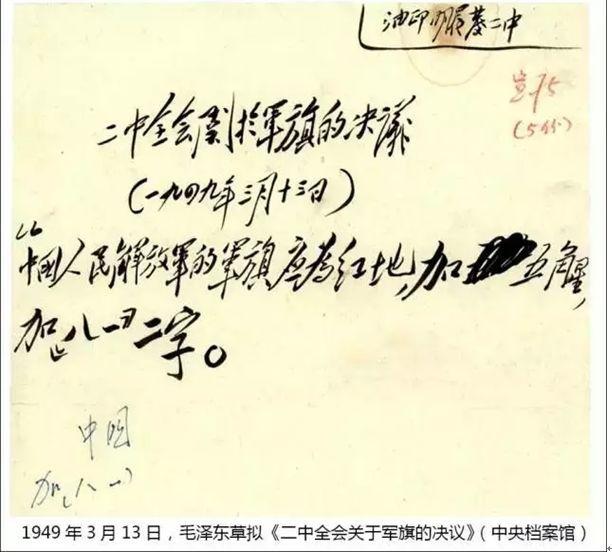 油印 二中
(5份)
二中全会关于军旗的决议
(一九四九年三月十三日)
“中國人民解放軍的軍旗应為红地,加五角星,
加“八一”二字。
中国
加(八一)
1949年3月13日，毛泽东草拟《二中全会关于军旗的决议》（中央档案馆）